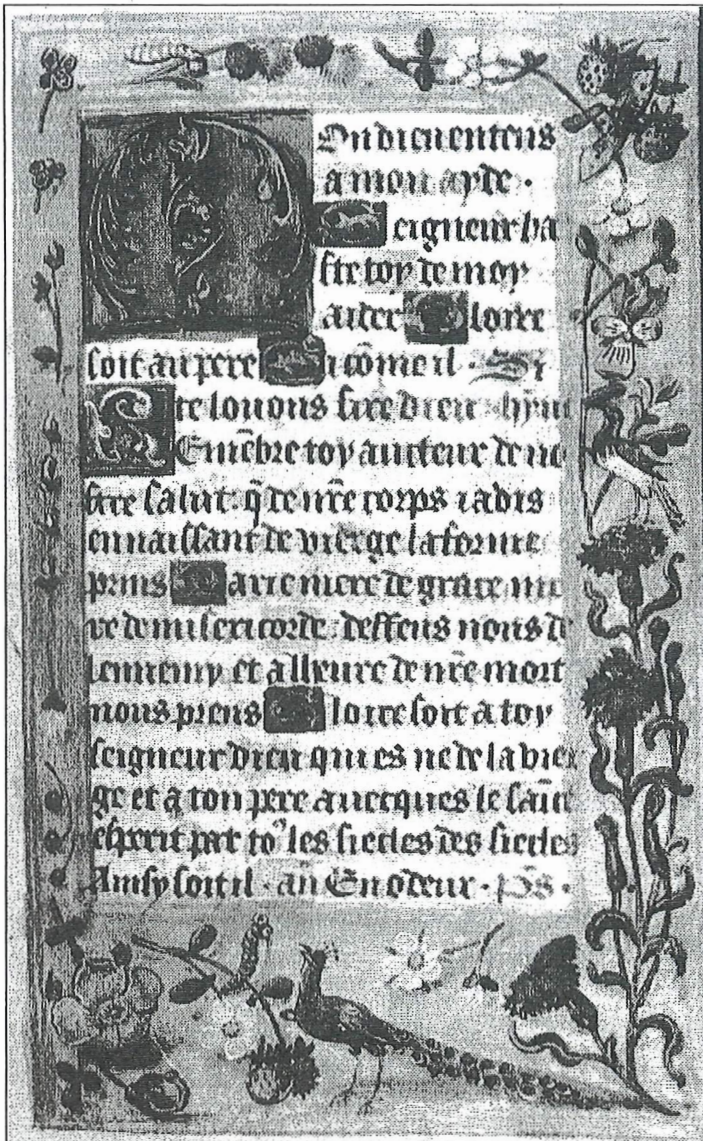 Mon dieu entens
a mon ayde ·
Seigneur ha
ste toy de moy
aider Gloire
soit au pere Si côme il · Si
te louons sire dieu · hym
Semêbre toy aucteur de no
stre salut: q̃ de nrẽ corps iadis
en naissant de vierge la forme
prins Marie mere de grace me
re de misericorde: deffens nous de
lennemy et a lheure de nrẽ mort
nous prens Gloire soit a toy
seigneur dieu qui es ne de la vier
ge et a ton pere auecques le saīt
esperit par to⁹ les siecles des siecles
Ainsy soit il · añ En odeur · ps̄ ·